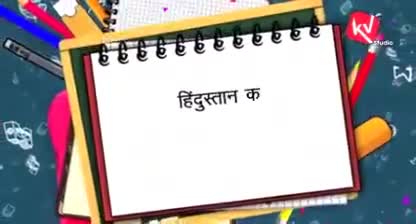 KV
Studio
हिंदुस्तान क